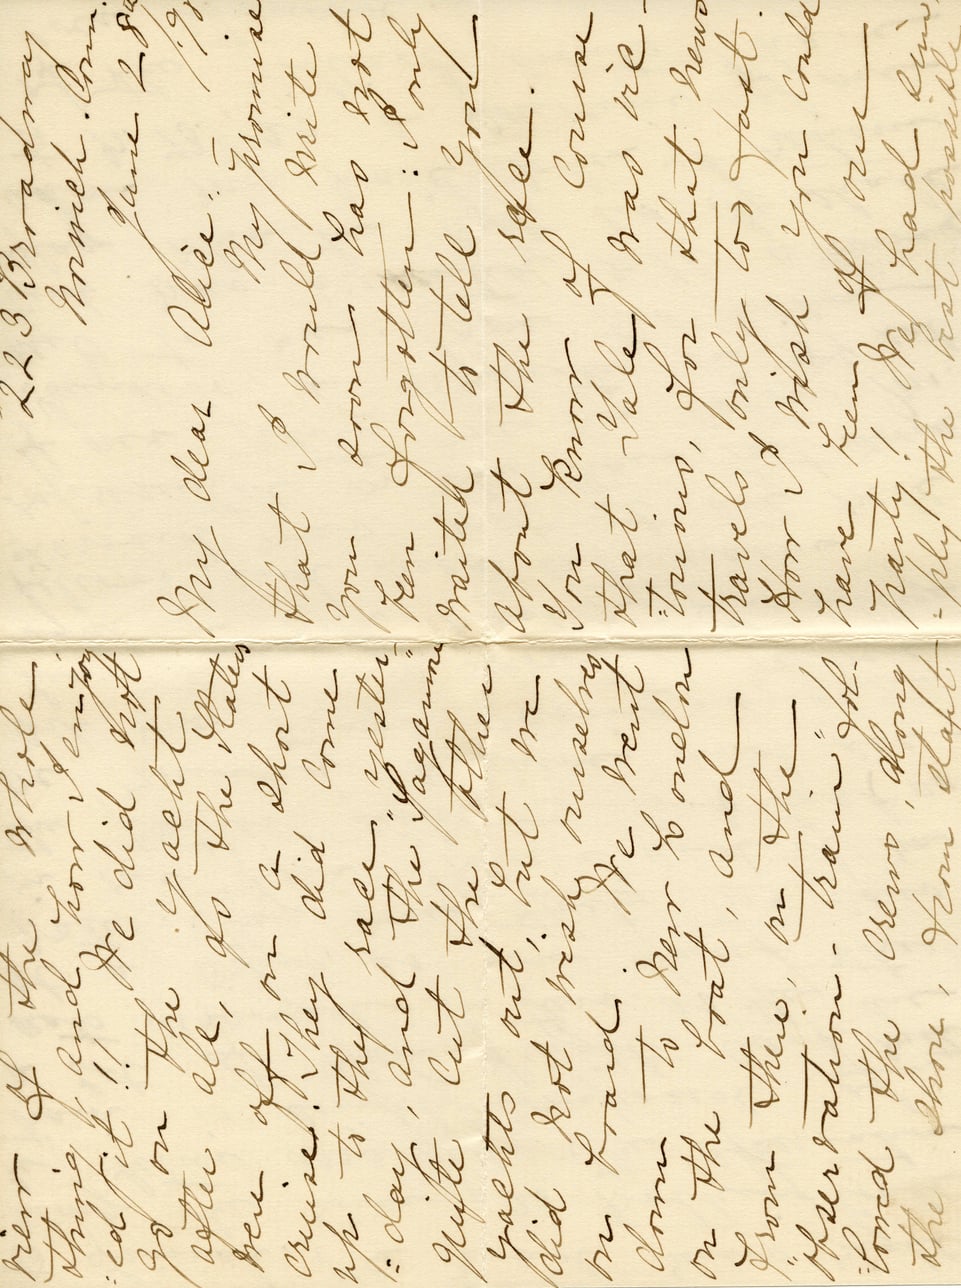 223 Broadway
Norwich. Conn.
June 28th
My dear Alice:-
My promise
that I would write
you soon has not
been forgotten: I only
waited to tell you
about the race.
You know of course
that Yale was vic-
"torious, for that news
travels only too fast.
How I wish you could
have been of our
party! We had sim-
-ply the best possible
view of the whole
thing, and how I enjoy-
"ed it!! We did not
go on the yacht
after all, for the Slaters
were off on a short
cruise. They did come
up to the race yester-
"day, and the "Sagamore"
quite cut the other
yachts out, but we
did not wish ourselves
on board. We went
down to New London
on the boat, and
from there, on the
"observation-train" fol-
"lowed the crews, along
the shore, from start